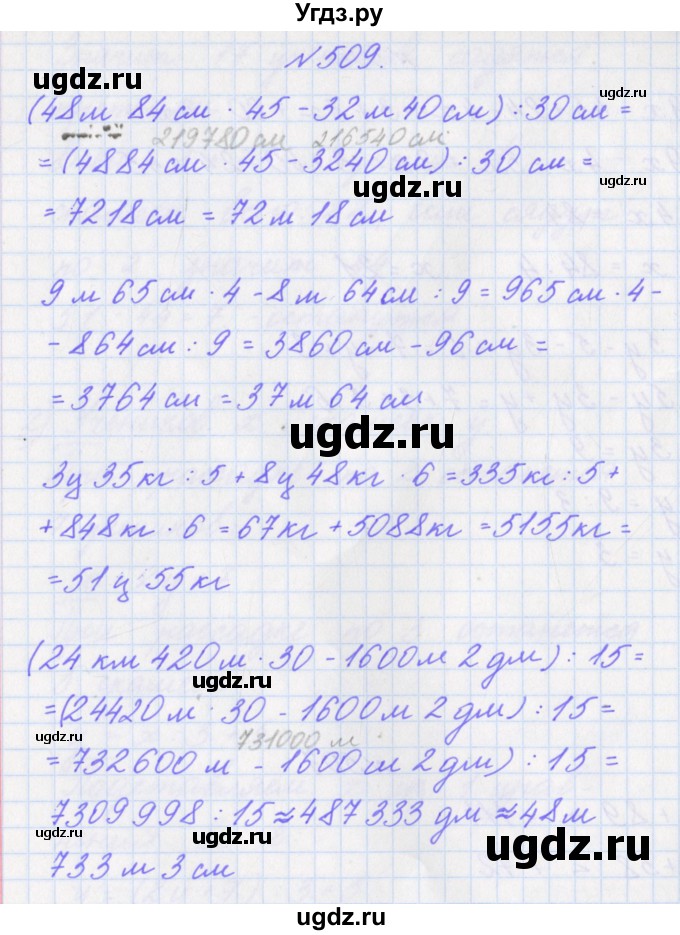 Угдз.ру
№509.
ugdz.ru
ugdz.ru
(48м 84см · 45 - 32м 40см) : 30см =
219780см 216540см
= (4884см · 45 - 3240см) : 30см =
ugdz.ru
ugdz.ru
= 7218см = 72м 18см
9м 65см · 4 - 8м 64см : 9 = 965см · 4 -
- 864см : 9 = 3860см - 96см =
= 3764см = 37м 64см
ugdz.ru
3ц 35кг : 5 + 8ц 48кг · 6 = 335кг : 5 +
+ 848кг · 6 = 67кг + 5088кг = 5155кг =
= 51ц 55кг
(24км 420м · 30 - 1600м 2дм) : 15 =
ugdz.ru
= (24420м · 30 - 1600м 2дм) : 15 =
ugdz.ru
731000 м
= 732600м - 1600м 2дм) : 15 =
7309998 : 15 ≈ 487333 дм ≈ 48м
ugdz.ru
733м 3см
ugdz.ru
ugdz.ru